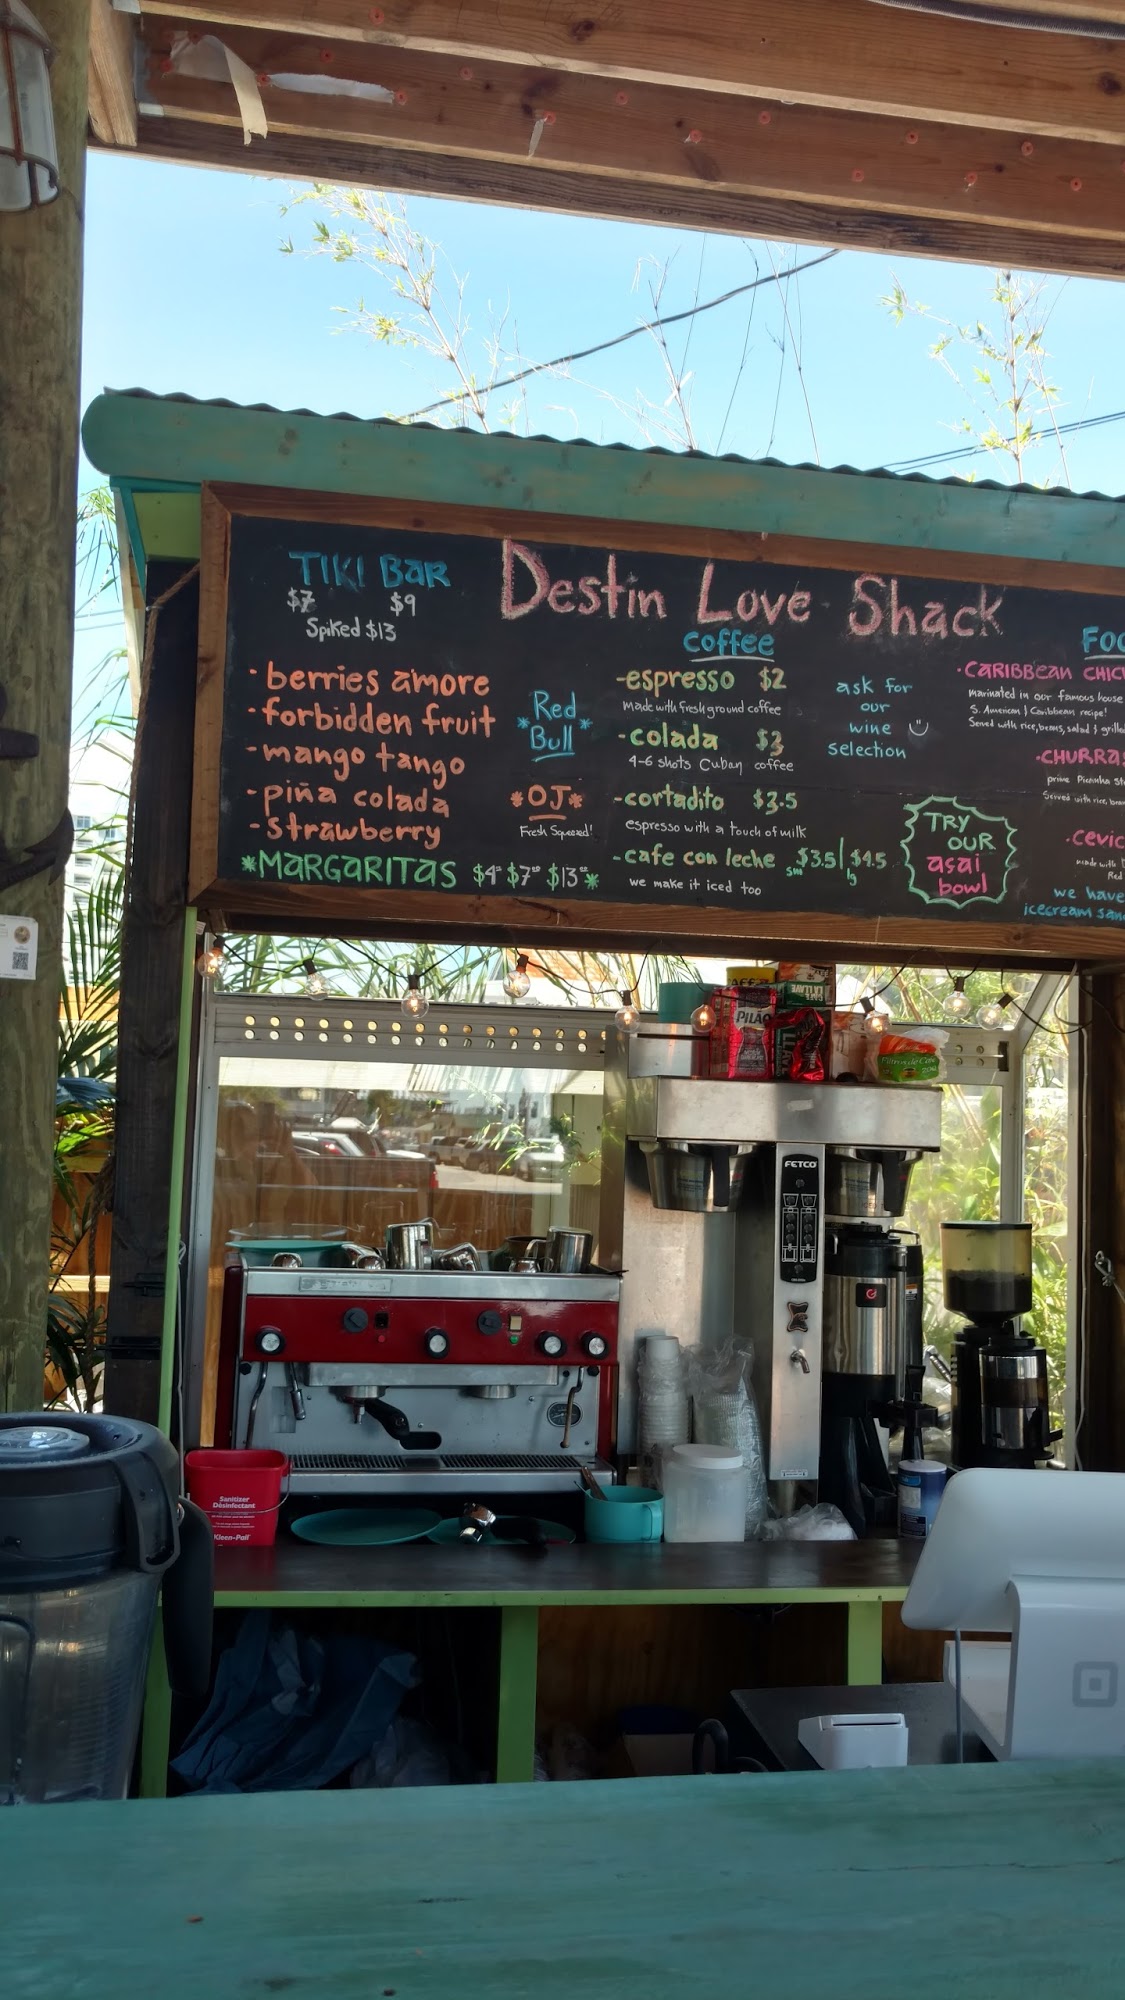 Destin Love Shack
TIKI BAR
$7 $9
Spiked $13
- berries amore
- forbidden fruit
- mango tango
- piña colada
- strawberry
*MARGARITAS $4 $7 $13*
*Red Bull*
*OJ*
Fresh Squeezed!
coffee
- espresso $2
made with fresh ground coffee
- colada $3
4-6 shots Cuban coffee
- cortadito $3.5
espresso with a touch of milk
- cafe con leche $3.5 | $4.5
sm lg
we make it iced too
ask for
our
wine
selection
TRY
OUR
açai
bowl
CARIBBEAN
marinated in our famous house
S. American / Caribbean recipe!
Served with rice, beans, salad
prime Picanha
Served with rice,
made with
Red
we have
icecream
PILÃO
FETCO
Sanitizer
Désinfectant
Kleen-Pail